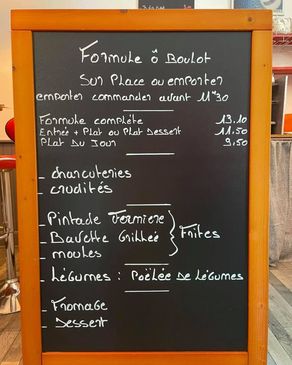 Formule ô Boulot
Sur Place ou emporter
emporter commander avant 11h30
Formule complète 13,10
Entrée + Plat ou Plat Dessert 11,50
Plat Du Jour 9,50
- charcuteries
- crudités
- Pintade Fermiere
- Bavette Grillée } Frites
- moules
- Légumes : Poëlée De Légumes
- Fromage
- Dessert